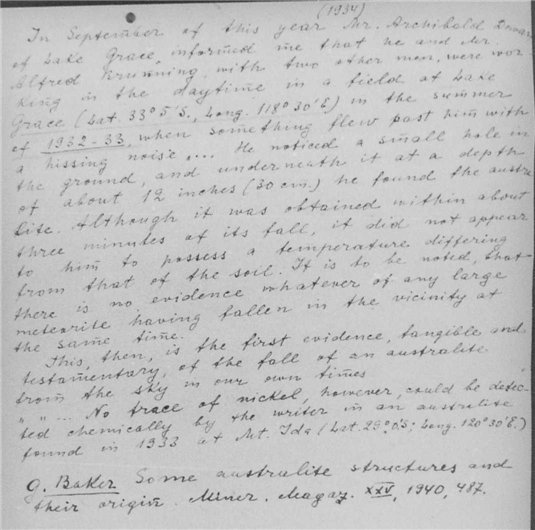 (1934)
In September of this year Mr. Archibald Dewar
of Lake Grace, informed me that he and Mr.
Alfred Brunning, with two other men, were wor-
king in the daytime in a field at Lake
Grace (Lat. 33°5'S., Long. 118°30'E.) in the summer
of 1932-33, when something flew past him with
a hissing noise .... He noticed a small hole in
the ground, and underneath it at a depth
of about 12 inches (30 cm.) he found the austra
lite. Although it was obtained within about
three minutes of its fall, it did not appear
to him to possess a temperature differing
from that of the soil. It is to be noted, that
there is no evidence whatever of any large
meteorite having fallen in the vicinity at
the same time.
This, then, is the first evidence, tangible and
testamentary, of the fall of an australite
from the sky in our own times
" " ... No trace of nickel, however, could be detec-
ted chemically by the writer in an australite
found in 1933 at Mt. Ida (Lat. 29°0'S; Long. 120°30'E.)
G. Baker Some australite structures and
their origin. Miner. Magaz. XXV, 1940, 487.